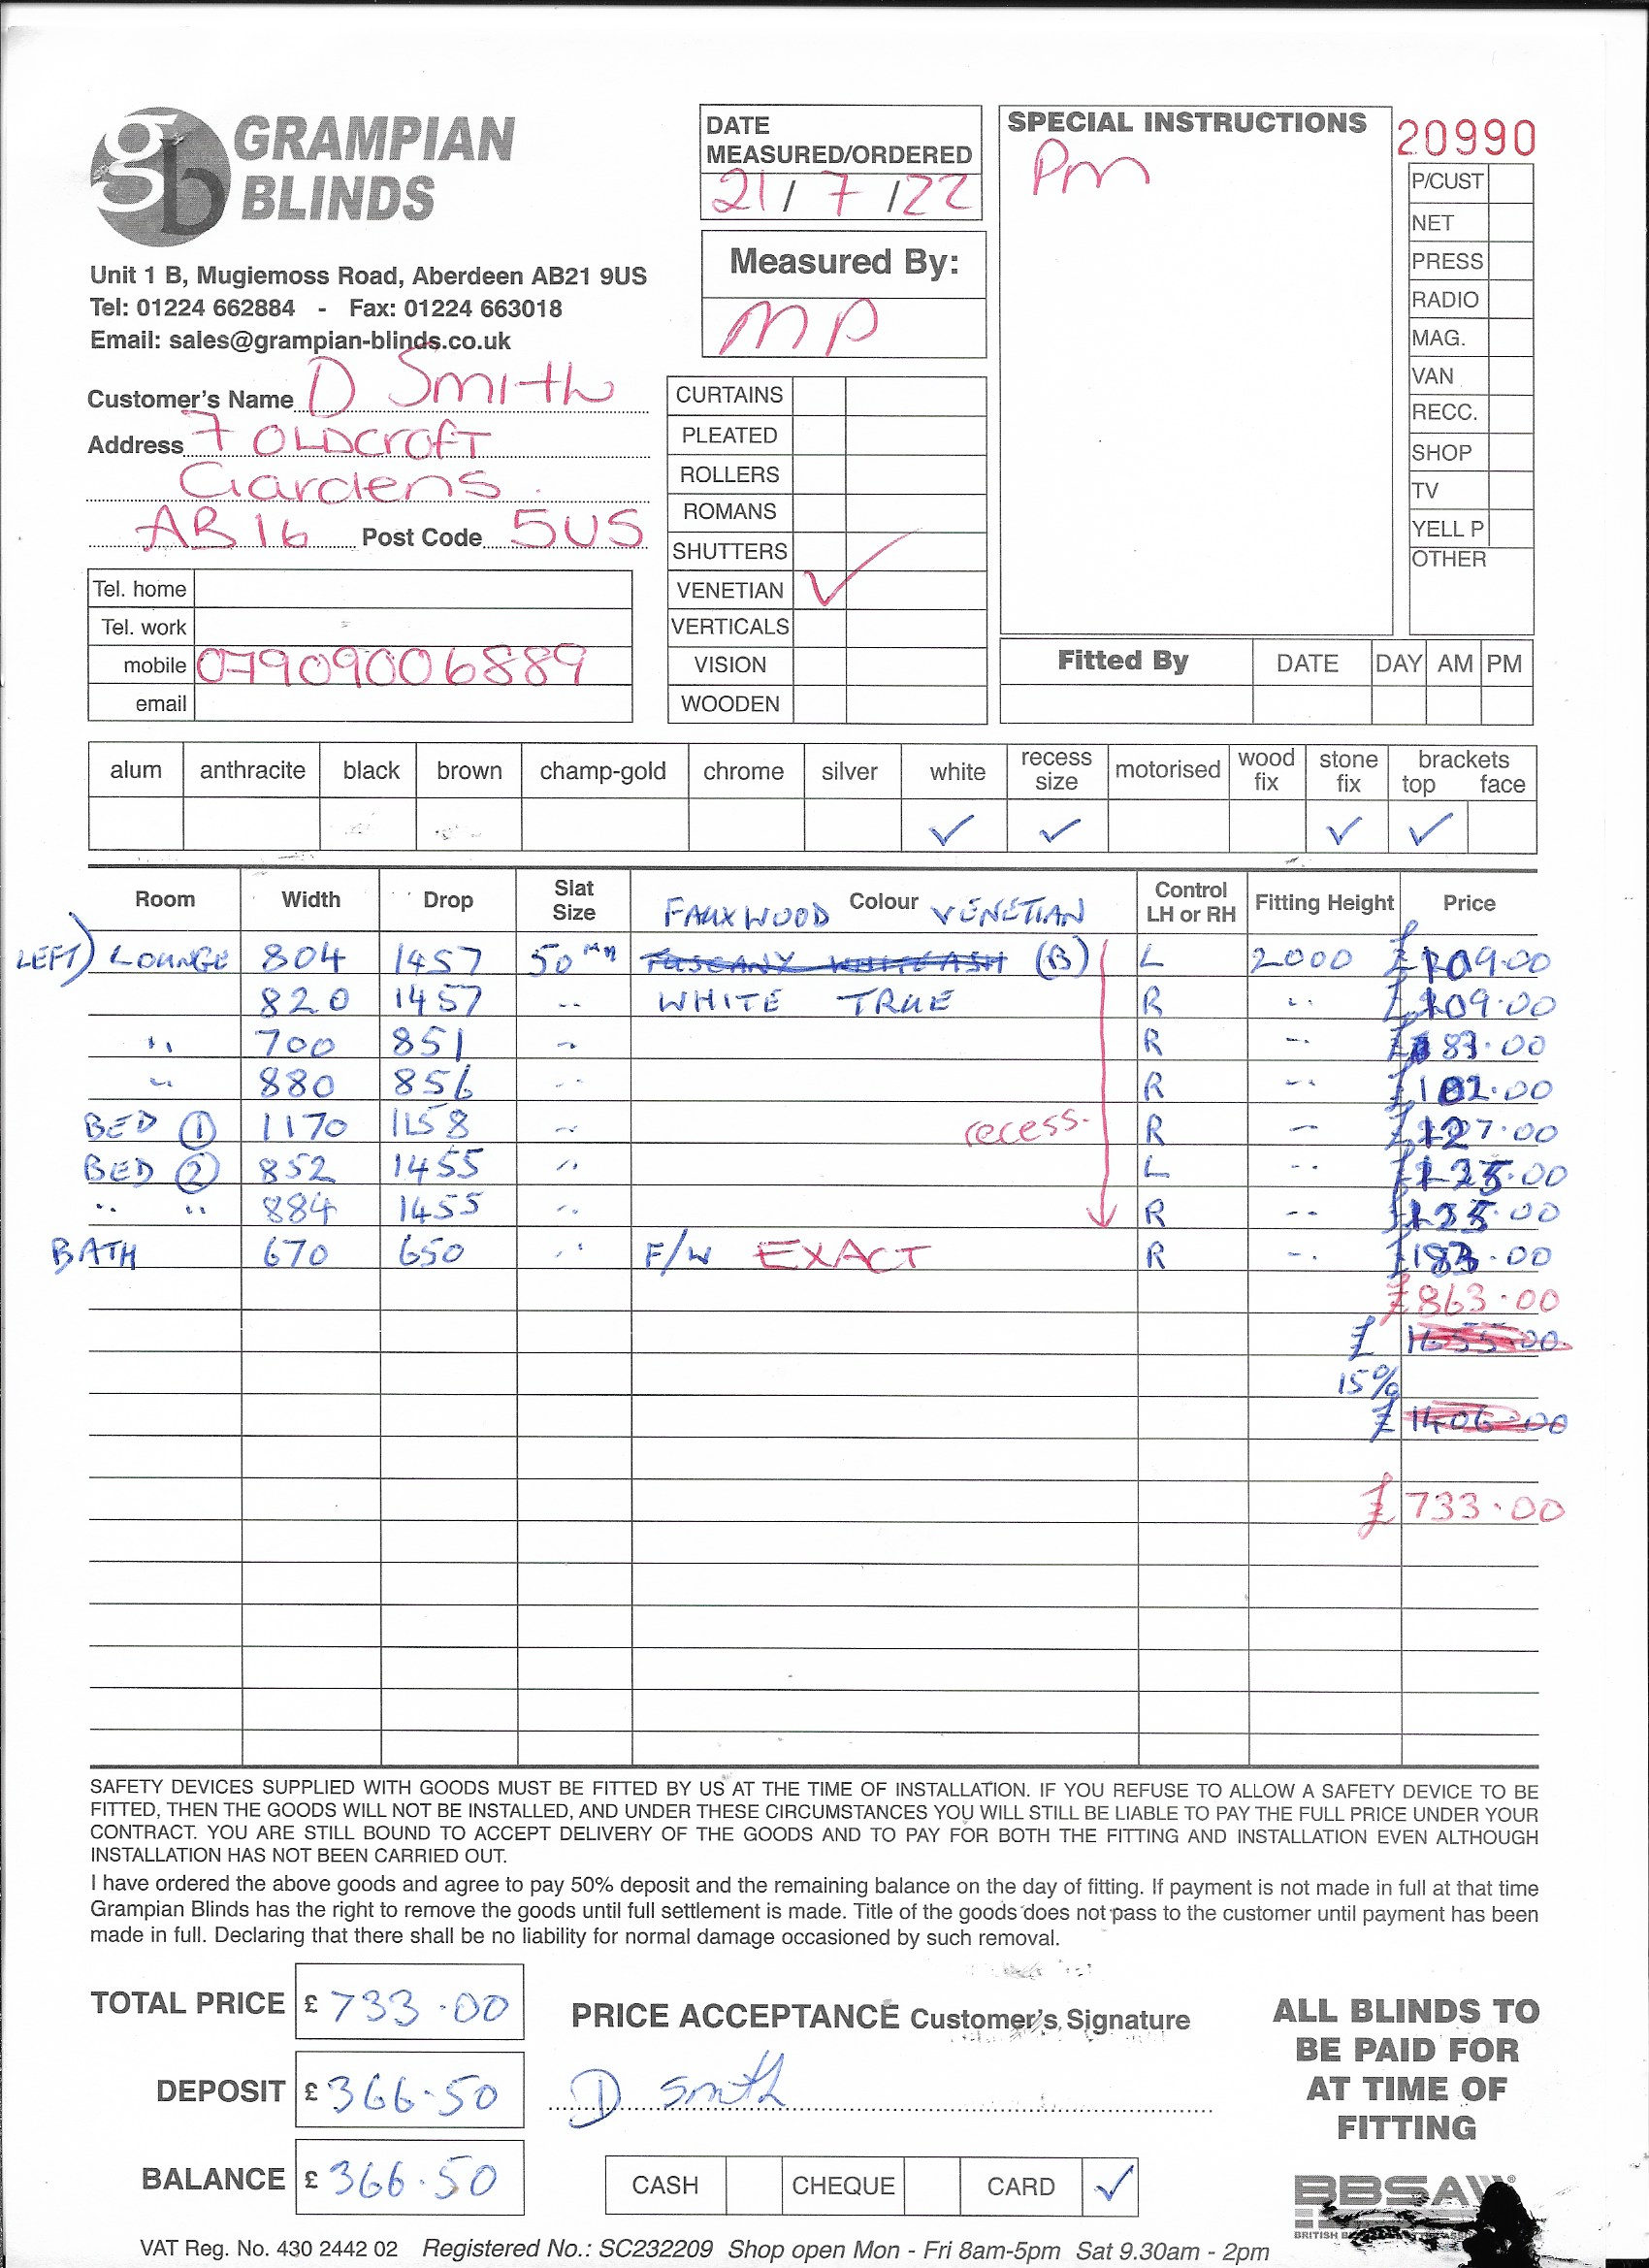 GRAMPIAN
BLINDS
Unit 1 B, Mugiemoss Road, Aberdeen AB21 9US
Tel: 01224 662884 - Fax: 01224 663018
Email: sales@grampian-blinds.co.uk
Customer's Name D Smith
Address 7 OLDCROFT
Gardens
AB16 Post Code 5US
Tel. home
Tel. work
mobile 07909006889
email
DATE
MEASURED/ORDERED
21/7/22
Measured By:
MP
CURTAINS
PLEATED
ROLLERS
ROMANS
SHUTTERS
VENETIAN ✓
VERTICALS
VISION
WOODEN
SPECIAL INSTRUCTIONS
Pm
20990
P/CUST
NET
PRESS
RADIO
MAG.
VAN
RECC.
SHOP
TV
YELL P
OTHER
Fitted By DATE DAY AM PM
alum anthracite black brown champ-gold chrome silver white recess size motorised wood fix stone fix brackets top face
✓ ✓ ✓ ✓
Room Width Drop Slat Size Colour Control LH or RH Fitting Height Price
FAUXWOOD VENETIAN
LEFT) LOUNGE 804 1457 50mm TUSCANY WHITE ASH (B) L 2000 £109.00
820 1457 " WHITE TRUE R " £109.00
" 700 851 " R " £83.00
" 880 856 " R " £102.00
BED ① 1170 1158 " recess. R " £127.00
BED ② 852 1455 " L " £125.00
" " 884 1455 " R " £125.00
BATH 670 650 " F/W EXACT R " £83.00
£863.00
£ 1655.00
15%
£ 1406.00
£733.00
SAFETY DEVICES SUPPLIED WITH GOODS MUST BE FITTED BY US AT THE TIME OF INSTALLATION. IF YOU REFUSE TO ALLOW A SAFETY DEVICE TO BE
FITTED, THEN THE GOODS WILL NOT BE INSTALLED, AND UNDER THESE CIRCUMSTANCES YOU WILL STILL BE LIABLE TO PAY THE FULL PRICE UNDER YOUR
CONTRACT. YOU ARE STILL BOUND TO ACCEPT DELIVERY OF THE GOODS AND TO PAY FOR BOTH THE FITTING AND INSTALLATION EVEN ALTHOUGH
INSTALLATION HAS NOT BEEN CARRIED OUT.
I have ordered the above goods and agree to pay 50% deposit and the remaining balance on the day of fitting. If payment is not made in full at that time
Grampian Blinds has the right to remove the goods until full settlement is made. Title of the goods does not pass to the customer until payment has been
made in full. Declaring that there shall be no liability for normal damage occasioned by such removal.
TOTAL PRICE £ 733.00
DEPOSIT £ 366.50
BALANCE £ 366.50
PRICE ACCEPTANCE Customer's Signature
D Smith
CASH CHEQUE CARD ✓
ALL BLINDS TO
BE PAID FOR
AT TIME OF
FITTING
BBSA
BRITISH
VAT Reg. No. 430 2442 02 Registered No.: SC232209 Shop open Mon - Fri 8am-5pm Sat 9.30am - 2pm